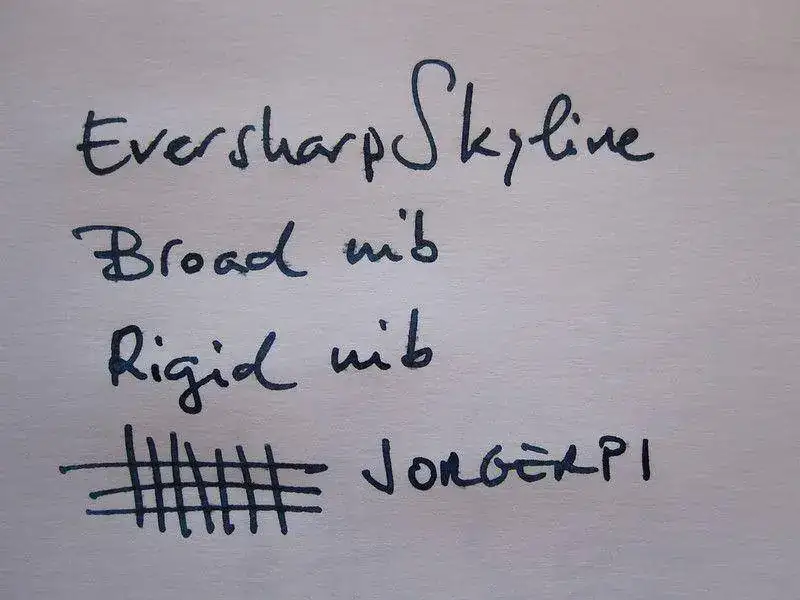 Eversharp Skyline
Broad nib
Rigid nib
JORGERPI